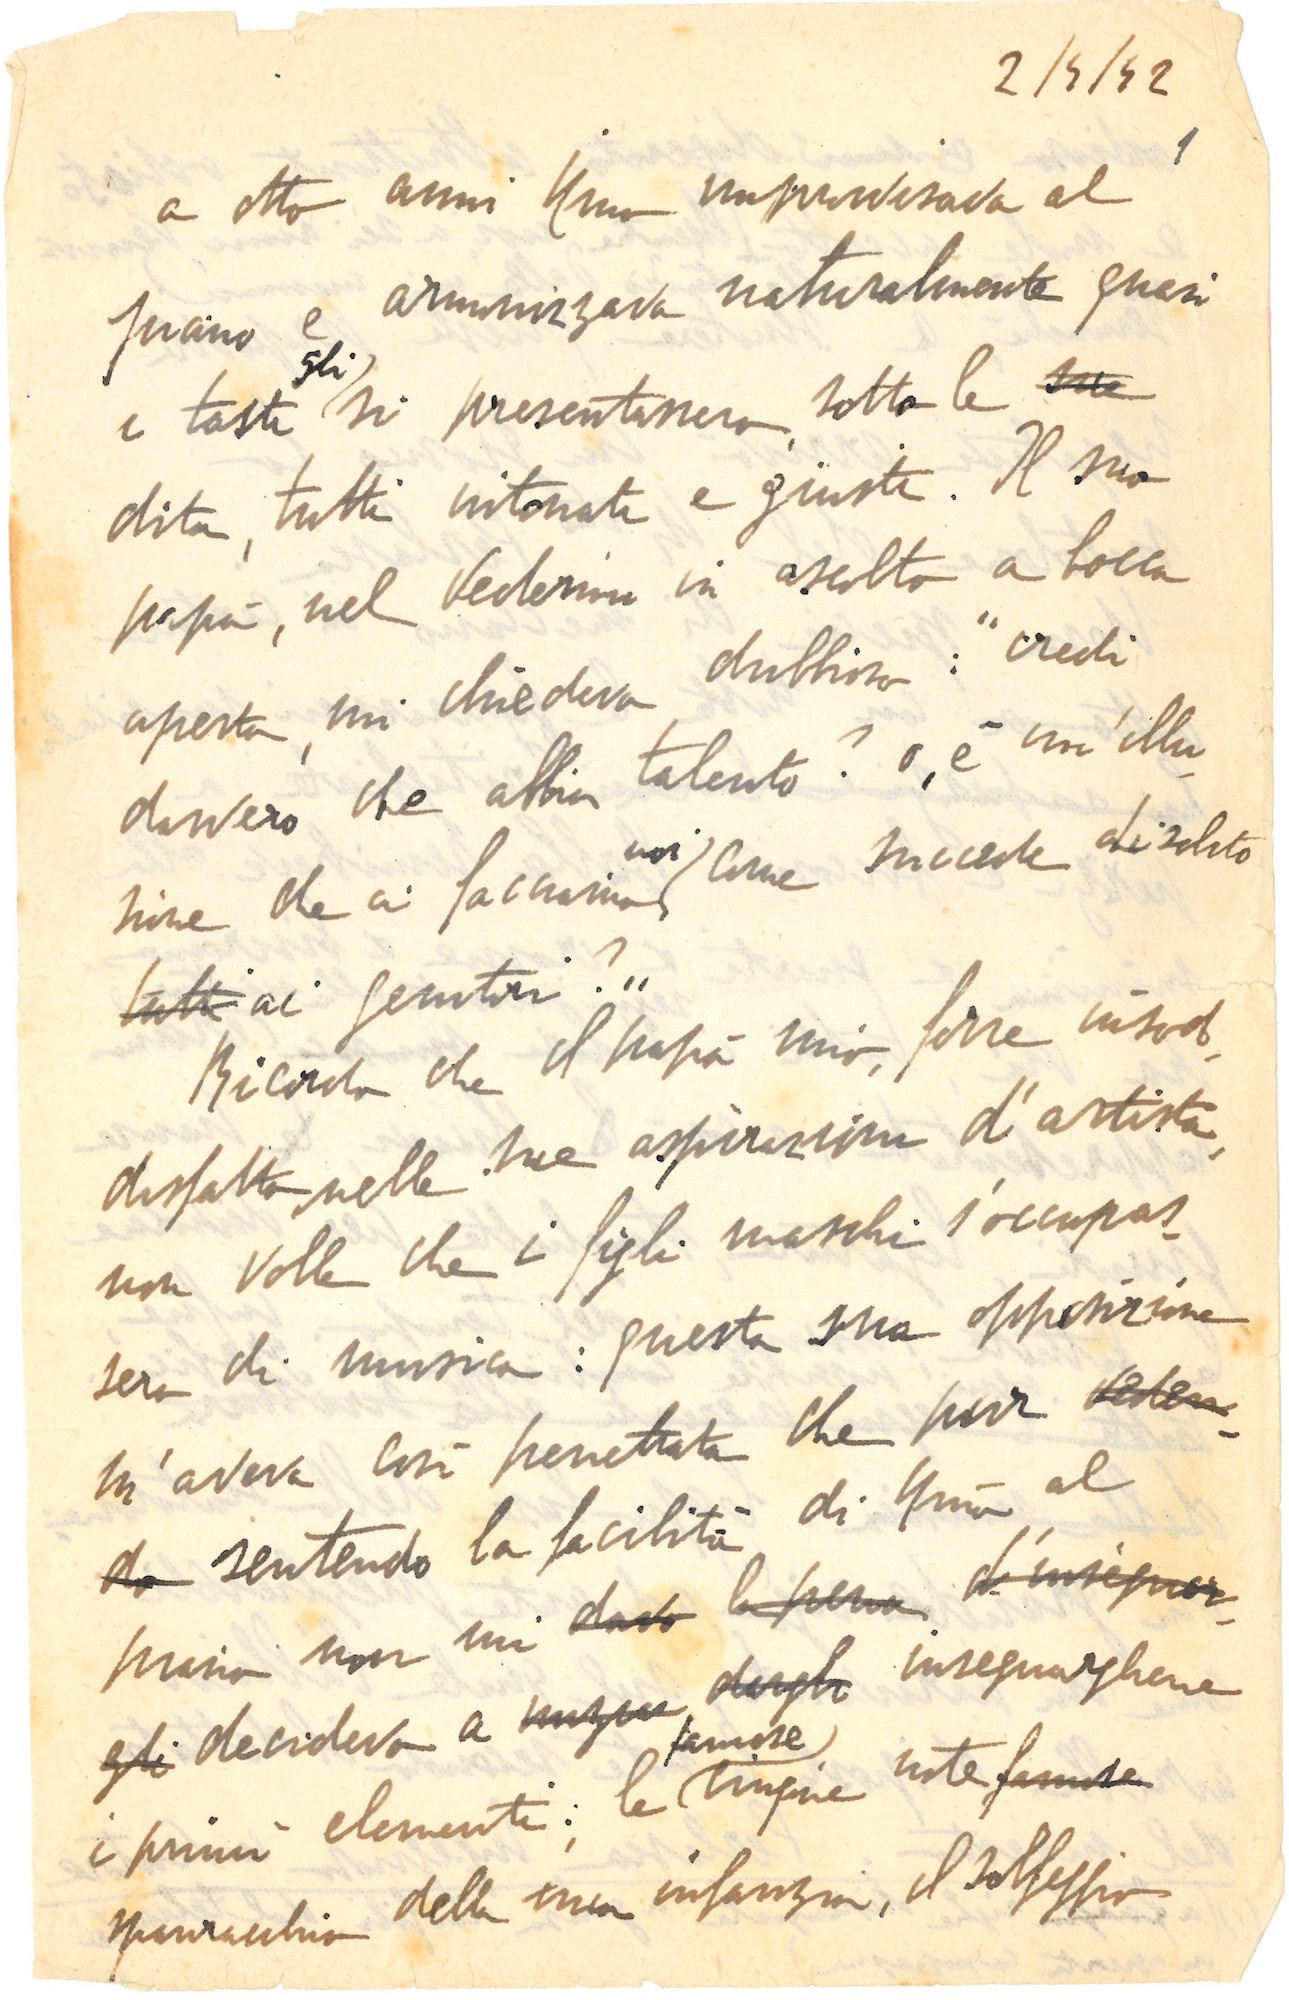 2/4/42
1
a otto anni Nino improvvisava al
piano e armonizzava naturalmente quasi
i tasti gli si presentassero, sotto le sue
dita, tutti intonati e giusti. Il suo
papà, nel vedermi in ascolto a bocca
aperta, mi chiedeva dubbioso: "credi
davvero che abbia talento? o, è un'illu-
sione che ci facciamo noi come succede di solito
tutti ai genitori?"
Ricordo che il papà mio, forse insod-
disfatto nelle sue aspirazioni d'artista,
non volle che i figli maschi s'occupas-
sero di musica: questa sua opposizione
m'aveva così penetrata che pur veden-
do sentendo la facilità di Nino al
piano non mi davo la pena d'insegnar-
gli decidevo a dargli insegnarghene
i primi elementi; le famose cinque note famose
spauracchio della mia infanzia, il solfeggio